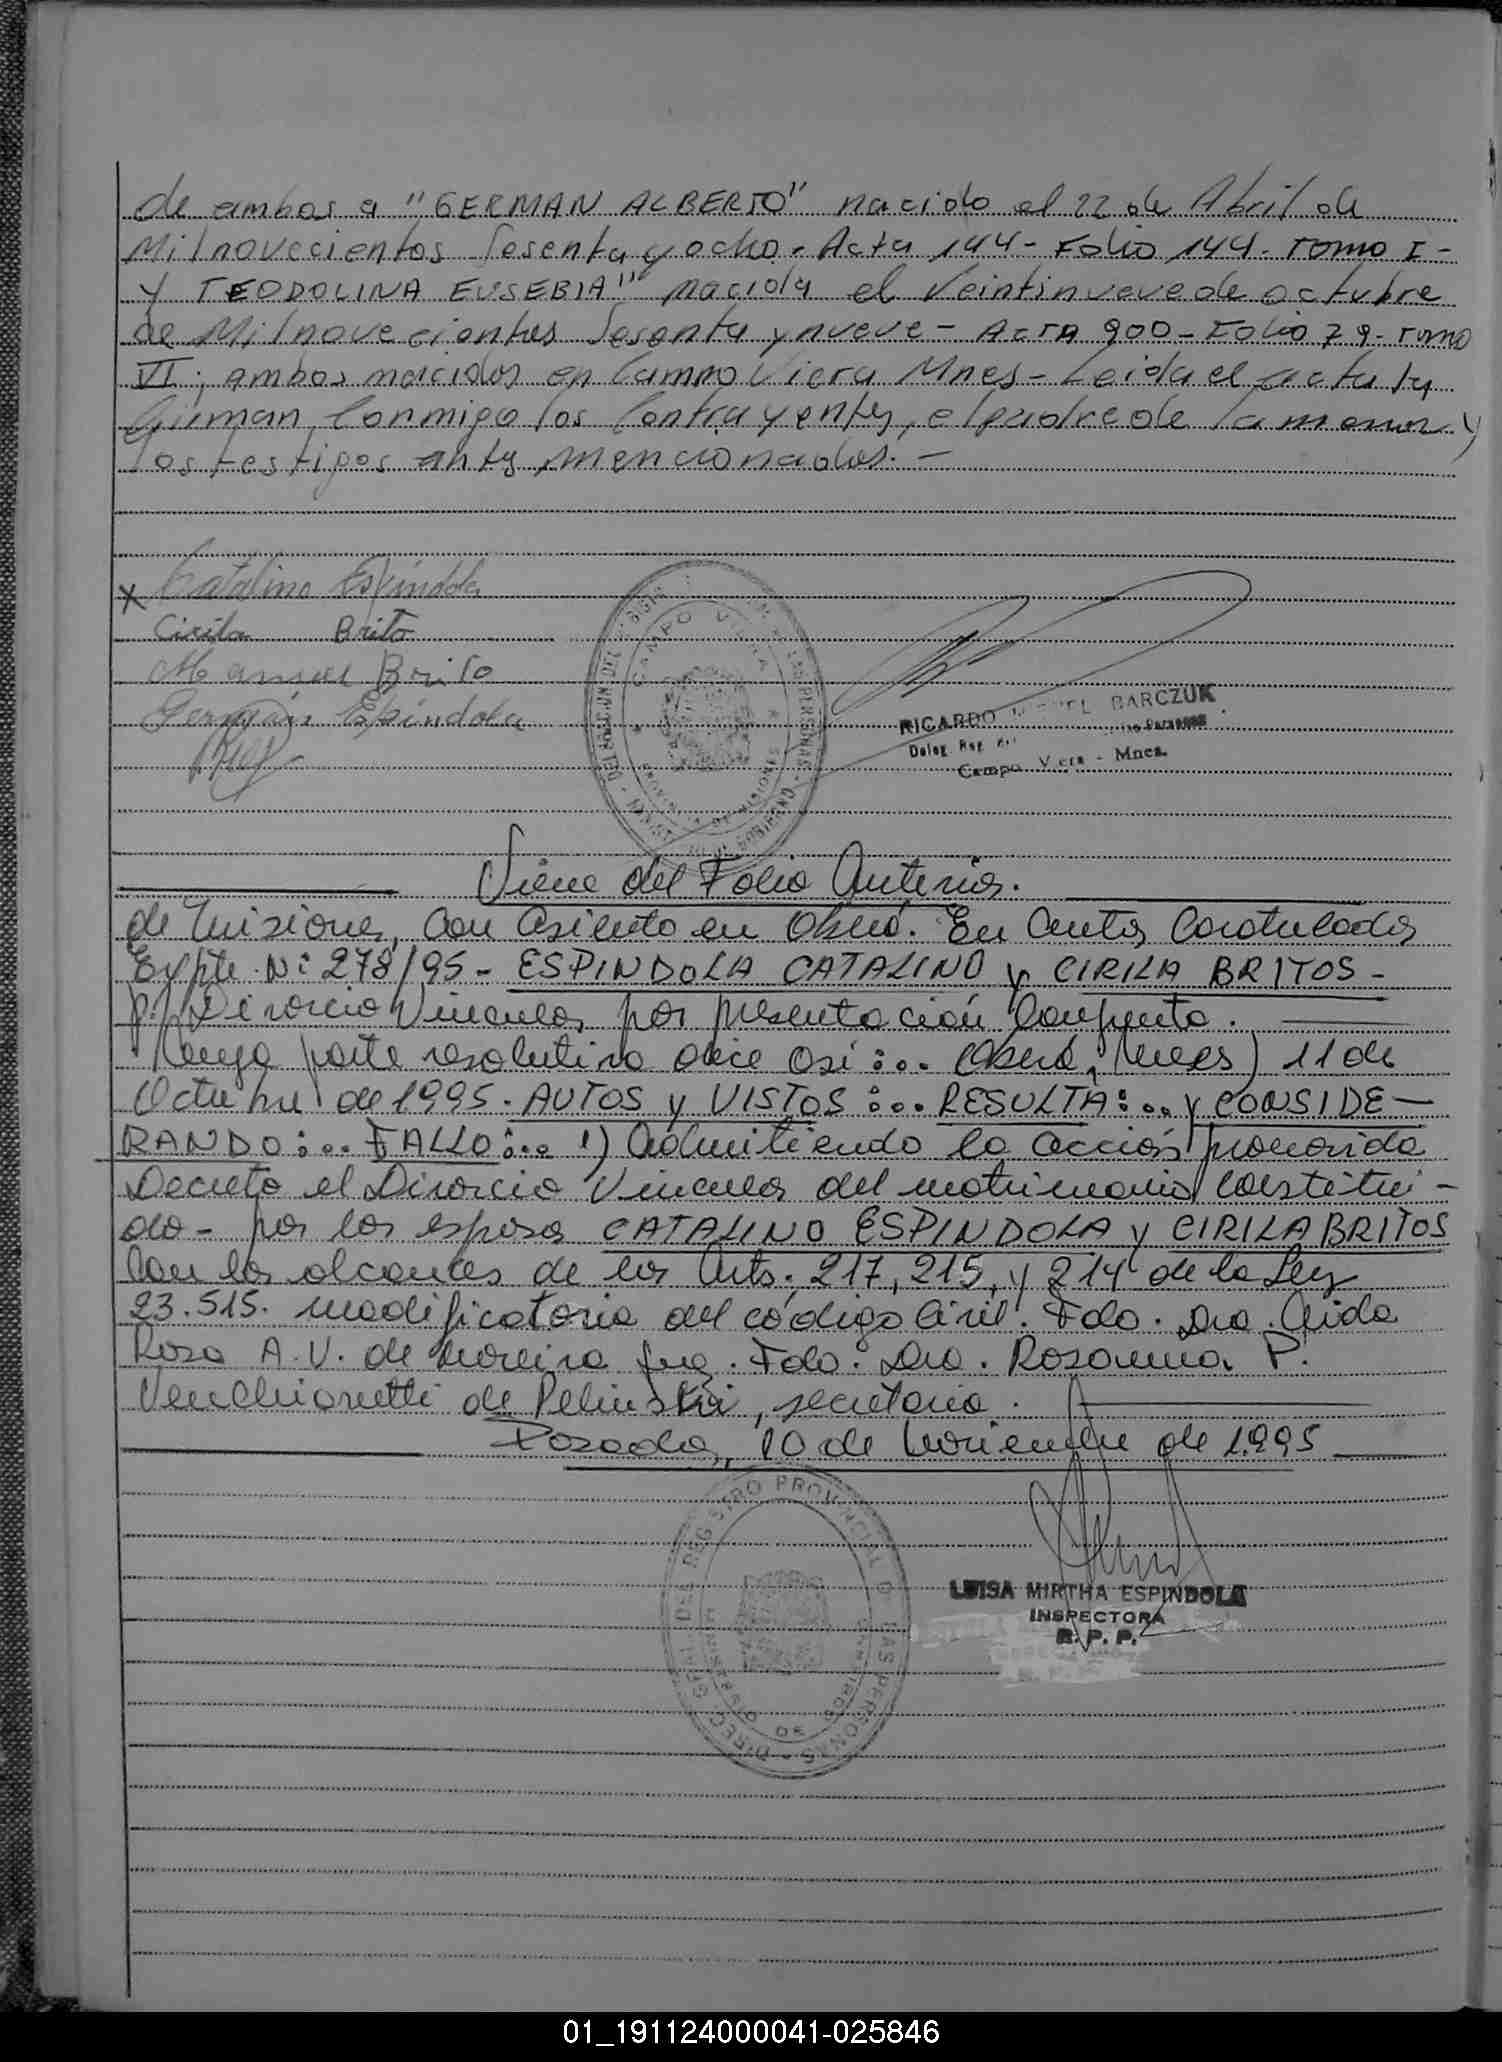 de ambos a "GERMAN ALBERTO" nacido el 22 de Abril de
Milnovecientos Sesenta y ocho. Acta 144- Folio 144. Tomo I-
y TEODOLINA EUSEBIA" nacida el Veintinueve de octubre
de Milnovecientos Sesenta y nueve - Acta 900 - Folio 79 - Tomo
VI; ambos nacidos en Campo Viera Mnes - Leida el acta la
firman Conmigo los Contrayentes, el padre de la menor y
los testigos antes mencionados. -
x Catalino Espíndola
Cirila Brito
Manuel Brito
German Espíndola
CAMPO VIERA
RICARDO MIGUEL BARCZUK
Deleg. Reg.
Campo Viera - Mnes.
Viene del Folio Anterior.
de Misiones, Con Asiento en Oberá. En Autos Caratulados
Expte. Nº 278/95 - ESPINDOLA CATALINO y CIRILA BRITOS -
p./ Divorcio Vincular por presentación Conjunta.
Cuya parte resolutiva dice así:... Oberá, (Mnes) 11 de
Octubre de 1995. AUTOS y VISTOS:... RESULTA:... y CONSIDE-
RANDO:... FALLO:... 1) Admitiendo la acción promovida
Decreto el Divorcio Vincular del matrimonio Constitui-
do - por los esposos CATALINO ESPINDOLA y CIRILA BRITOS
Con los alcances de los Arts. 217, 215, y 214 de la Ley
23.515. modificatoria del código Civil. Fdo. Dra. Aida
Rosa A. V. de Moreira Juez. Fdo. Dra. Rosanna P.
Venchiarutti de Pelinski, secretaria.
Posadas, 10 de Noviembre de 1.995
DIREC. GRAL. DEL REGISTRO PROVINCIAL D. LAS PERSONAS
LUISA MIRTHA ESPINDOLA
INSPECTORA
R. P. P.
01_191124000041-025846